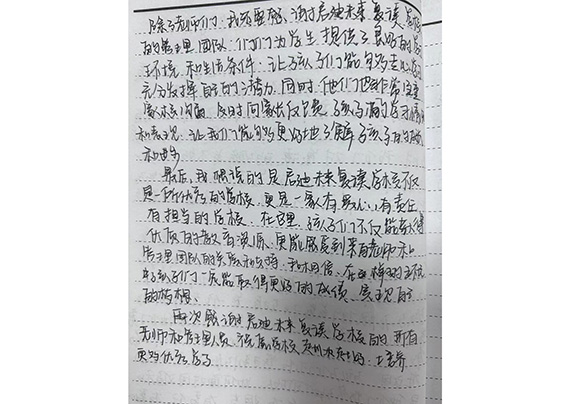 除了老师们，我还要感谢启迪未来复读学校
的管理团队，他们为学生提供了良好的学
环境和生活条件，让孩子们能够专心学习
充分发挥自己的潜力。同时，他们也非常注重
家校沟通，及时向家长反馈孩子们的学习情况
和表现，让我们能够更好地了解孩子的
和进步
最后，我想说的是启迪未来复读学校不仅
是一所优秀的学校，更是一家有爱心、有责任
有担当的学校。在这里，孩子们不仅能够获得
优质的教育资源，更能感受到来自老师和
管理团队的关爱和支持。我相信，在这样的
孩子们一定能取得更好的成绩，实现自己
的梦想。
再次感谢启迪未来复读学校的所有
老师和管理人员，祝愿学校越来越好，培养
更多优秀学子